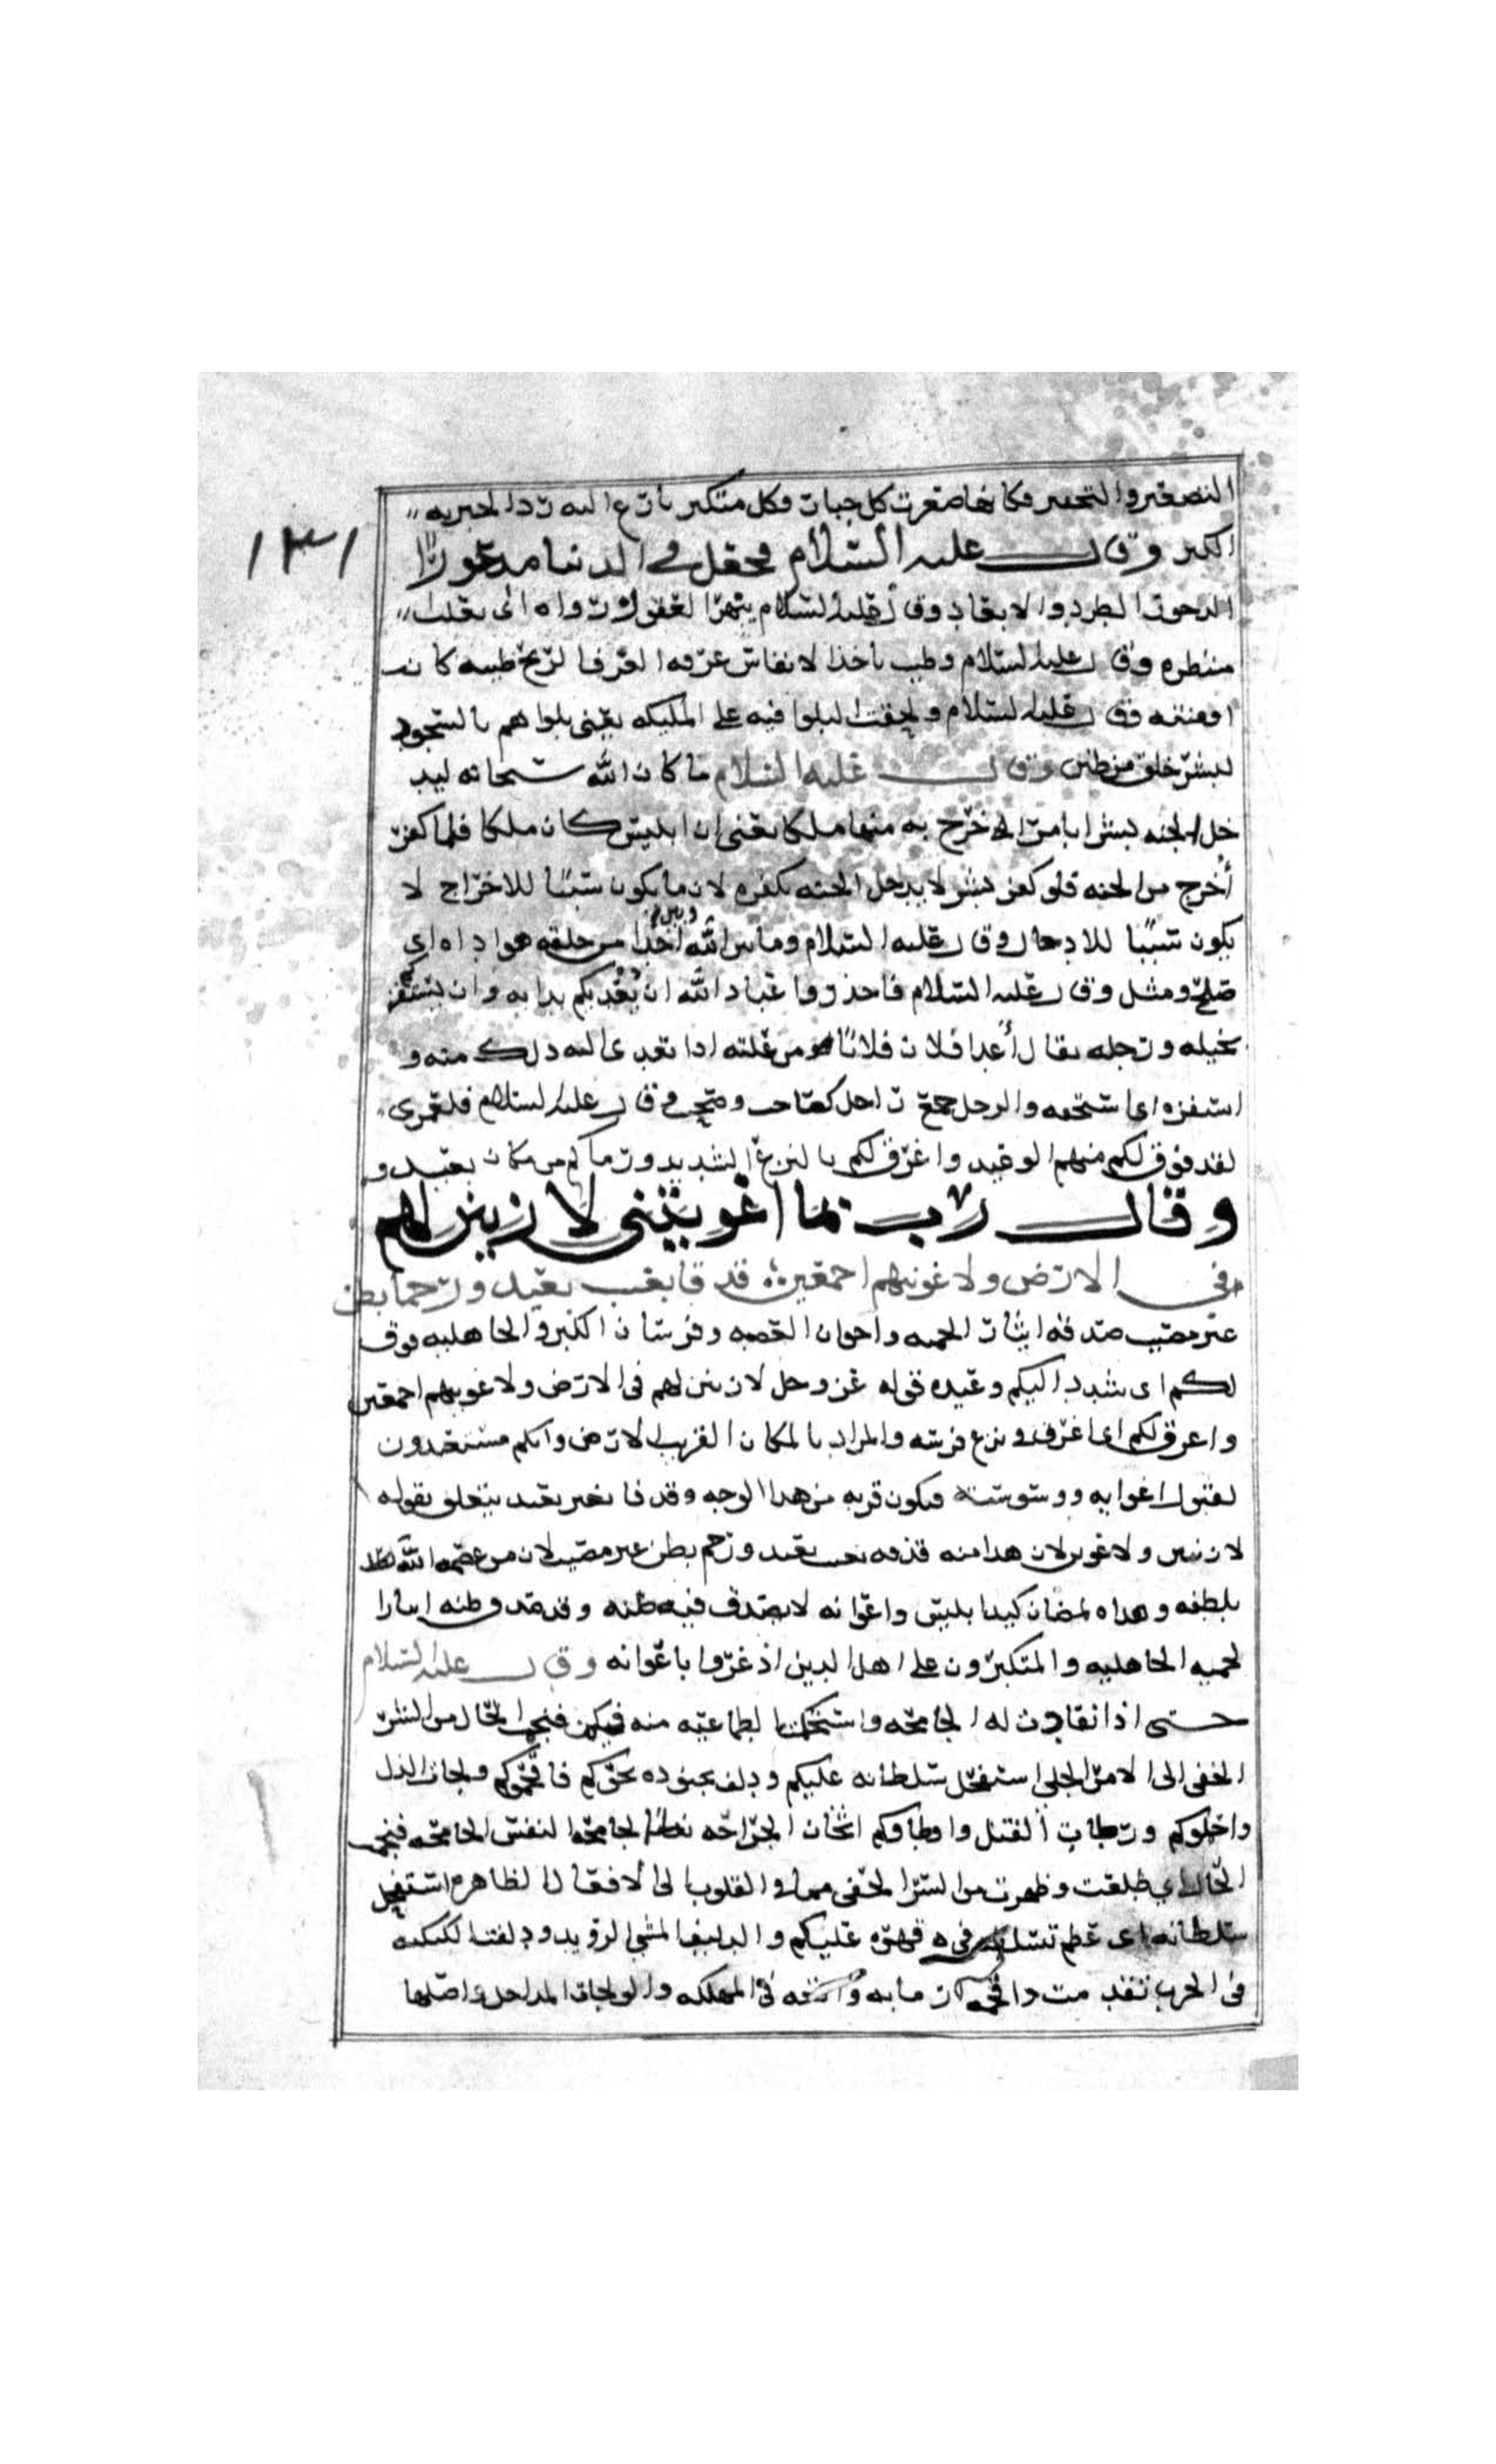 التصغير والتحقير فكانها صغرت كل جبار وكل متكبر نازع الله ردا الجبريه
١٣١
الكبر وقال عليه السلام فجعله في الدنيا مدحورا
الدحور الطرد والابعاد وقال عليه السلام يبهر العقول رواه اى يغلب
منظره وقال عليه السلام وطيب ياخذ الانفاس عرفه العرف الريح طيبه كانت
او منتنه وقال عليه السلام ولخفت البلوا فيه على المليكه يعنى بلواهم بالسجود
لبشر خلق من طين وقال عليه السلام ما كان الله سبحانه ليد
خل الجنه بشرا بامر اخرج به منها ملكا يعنى ان ابليس كان ملكا فلما كفر
أخرج من الجنه فلو كفر بشر لا يدخل الجنه بكفره لان ما يكون سببا للاخراج لا
يكون سببا للادخال وقال عليه السلام وما بين الله وبين احد من خلقه هواده اى
صلح وميل وقال عليه السلام فاحذروا عباد الله ان يعديكم بدايه وان يستفز
بخيله ورجله يقال أعدا فلان فلانا من علته اذا تعدى اليه ذلك منه و
استفزه اى استخفه والرجل جمع راجل كصاحب وصحب وقال عليه السلام فلعمرى
لقد فوق لكم سهم الوعيد واغرق لكم بالنزع الشديد ورماكم من مكان بعيد و
وقال رب بما اغويتنى لازينن لهم
فى الارض ولاغوينهم اجمعين قذفا بغيب بعيد ورجما بظن
غير مصيب صدقه ابنا الحميه واخوان العصبه وفرسان الكبر والجاهليه فوق
لكم اى شدد اليكم وعيده قوله عز وجل لازينن لهم فى الارض ولاغوينهم اجمعين
واغرق لكم اى اغرق فى نزع قوسه والمراد بالمكان القريب الارض وانكم مستعدون
لقبول اغوايه ووسوسته فيكون قربه من هذا الوجه وقذفا بغيب بعيد يتعلق بقوله
لازينن ولاغوين لان هذا منه قذف بغيب بعيد ورجم بظن غير مصيب لان من عصمه الله
بلطفه وهداه لمضان كيد ابليس واغوانه لا يصدق فيه ظنه وقد صدق ظنه ابنا
لحميه الجاهليه والمتكبرون على اهل الدين اذ غروا باغوانه وقال عليه السلام
حتى اذا انقادت له الجامحه واستحكمت الطماعيه منه فيكم فنجمت الحال من السر
الخفى الى الامر الجلى استفحل سلطانه عليكم ودلف بجنوده نحوكم فاقحموكم ولجات الذل
واحلوكم ورطات القتل واوطاوكم اثخان الجراحه الجامحه النفس الجامحه فنجمت
الحال اى طلعت وظهرت من السر الخفى مما فى القلوب الى الافعال الظاهره استفحل
سلطانه اى عظم تسلطه فى قهره عليكم والدليف المشى الرويد ودلفت الكتيبه
فى الحرب تقدمت واقحمه فى المهلكه والولجات المداخل واصلها